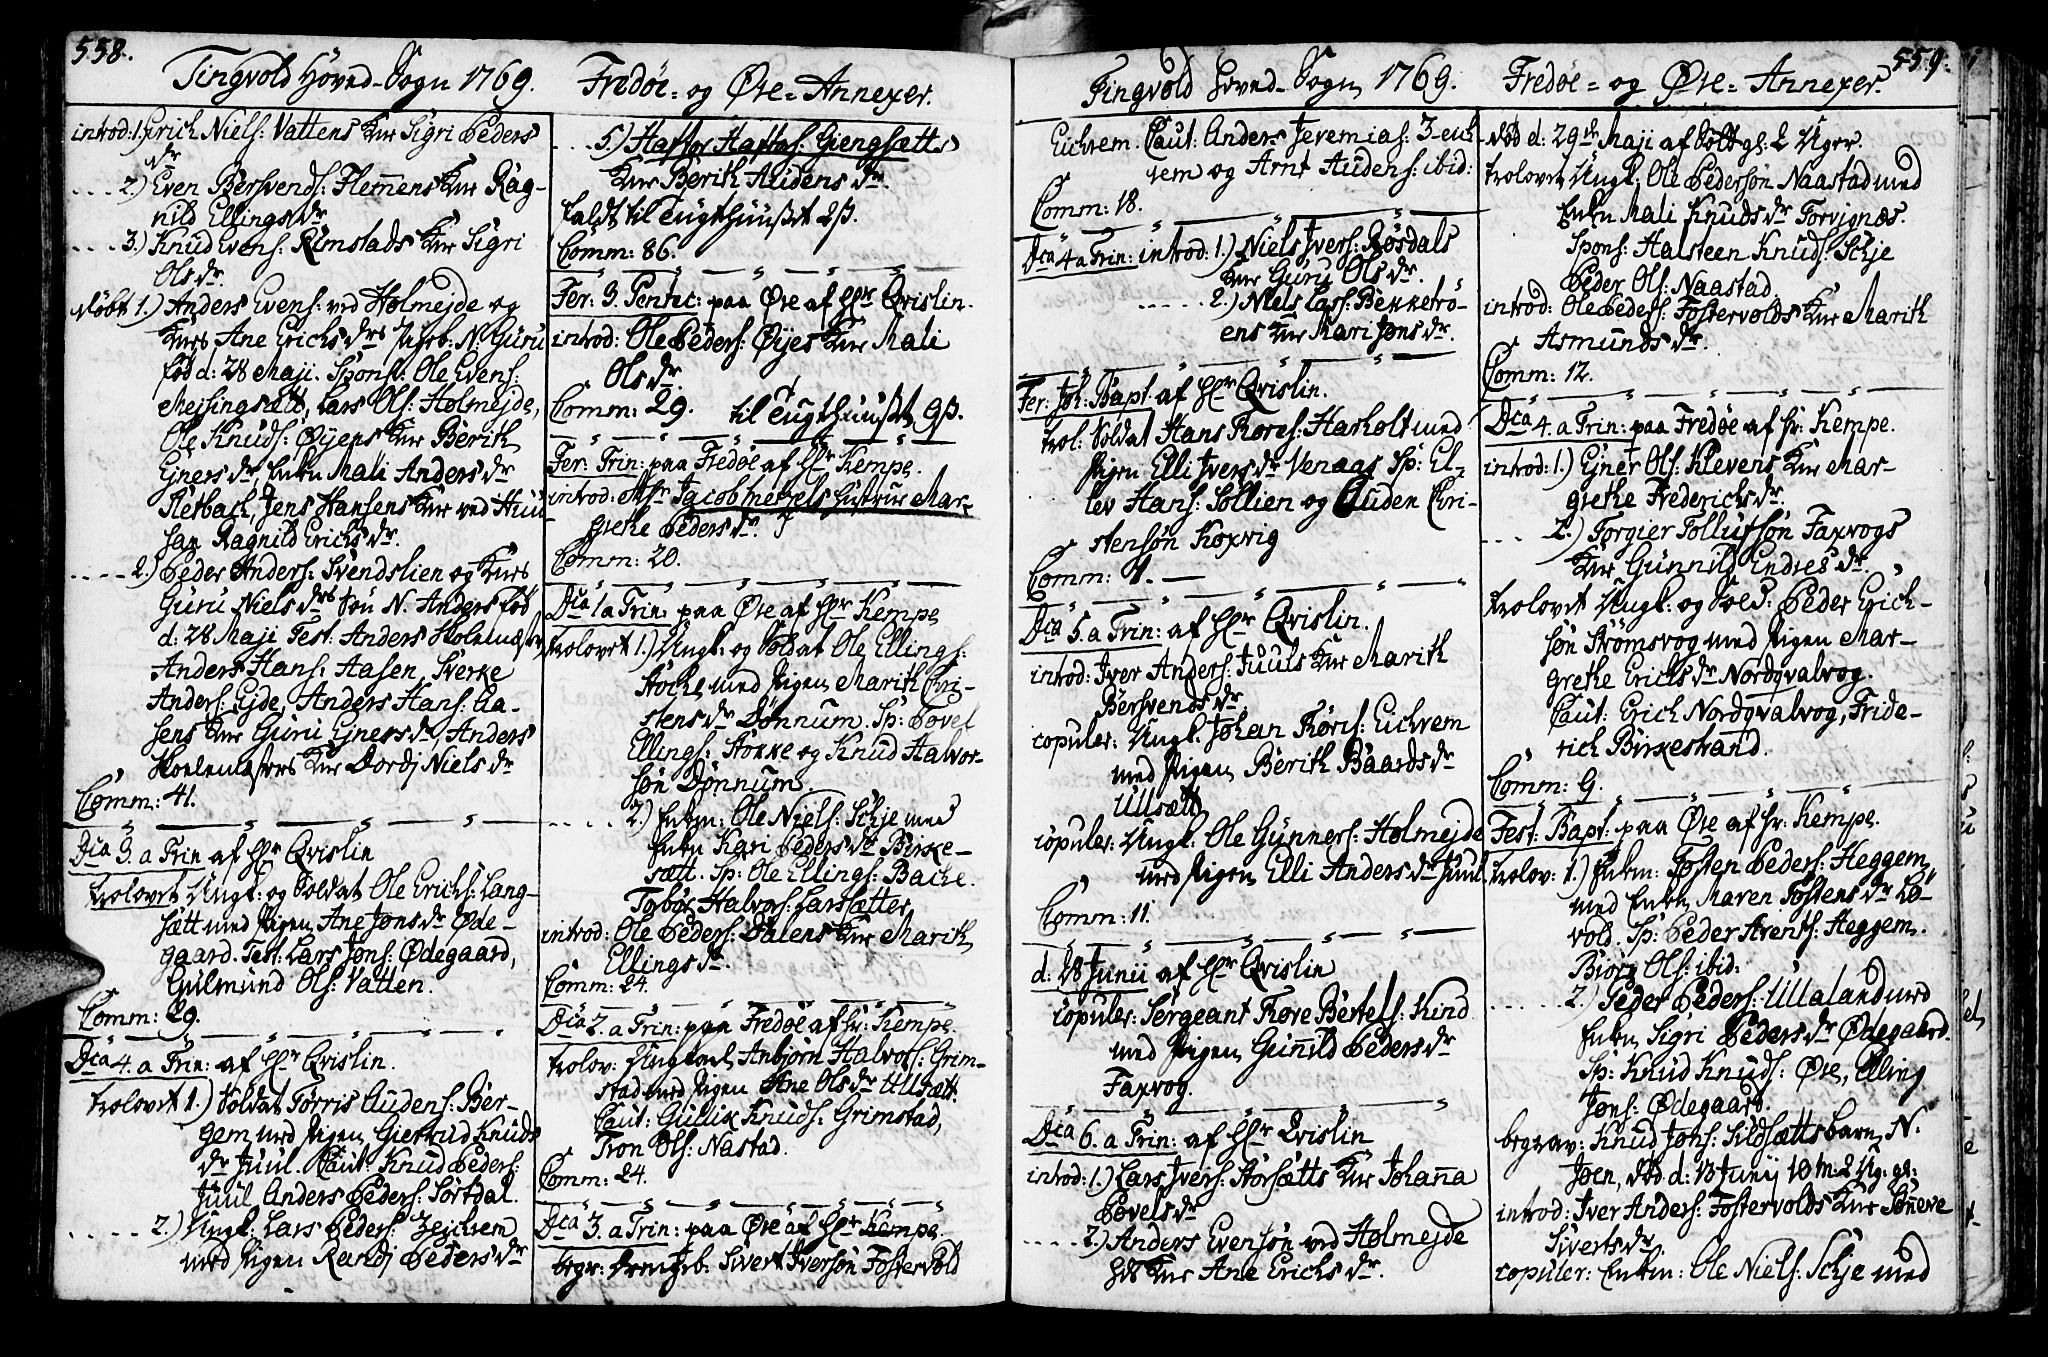 558.
Tingvold Hoved-Sogn 1769.
introd: 1.) Erich Niels: Vattens Kne Sigri Peders
dr
2.) Even Bersvends: Flemmens Kne Rag-
nild Ellings dr
3.) Knud Evens: Rimstads Kne Sigri
Ols dr.
döbt 1.) Anders Evens: ved Holmejde og
Knes Ane Erichs drs N. Guru
fød d: 28 Maji. Spons: Ole Evens:
Mejsingsætt, Lars Ols: Holmejde,
Ole Knuds: Øyens Kne Berith
Ejners dr, Enkn Mali Anders dr
Retbach, Jens Hansens Kne ved Huu
san Ragnild Erichs dr.
2.) Peder Anders: Svendslien og Knes
Guru Niels drs Søn N. Anders fød
d: 28 Maji Test: Anders Skolemæster,
Anders Hans: Aasen, Sverke
Anders: Ejde, Anders Hans: Aa-
sens Kne Guru Ejners dr Anders
Skolemæsters Kne Dordj Niels dr
Comm: 41.
Dca 3. a Trin af Hr Qvislin
trolovet Ungk: og Soldat Ole Erichs: Lang-
sætt med Pigen Ane Jøns dr Øde-
gaard. Test: Lars Jøns: Ødegaard,
Gulmund Ols: Vatten.
Comm: 29.
Dca 4. a Trin: af Hr Qvislin.
trolovet 1.) Soldat Torris Audens: Ber-
gem med Pigen Giertrud Knuds
dr Juul. Caut: Knud Peders:
Juul Anders Peders: Sørtdal.
2.) Ungk: Lars Peders: Zejchrem
med Pigen Randj Peders dr
Fredøe- og Øre-Annexer.
5.) Haftor Haftos: Giengsætts
Kne Berith Audens dr.
faldt til Tugthuuset 2 ß.
Comm: 86.
Fer: 3. Pentec: paa Øre af Hr Qvislin.
introd: Ole Peders: Øyes Kne Mali
Ols dr.
Comm: 29. til Tugthuuset 9 ß.
Fer: Trin: paa Fredøe af Hr Kempe.
introd: Mr Jacob Hustrue Mar-
grethe Peders dr.
Comm: 20.
Dca 1 a Trin: paa Øre af Hr Kempe
trolovet 1.) Ungk: og Soldat Ole Ellings:
Stocke med Pigen Marith Cri-
stens dr Dønnum. Sp: Povel
Ellings: Stokke og Knud Halvor-
søn Dønnum.
2.) Enkm: Ole Niels: Schje med
Enkn Kari Peders dr Birke-
sætt. Sp: Ole Ellings: Backe.
Torbør Halvors: Larssætter
introd: Ole Peders: Dalens Kne Marith
Ellings dr.
Comm: 24.
Dca 2. a Trin: paa Fredøe af Hr: Kempe.
trolov: Ungkarl Anbjørn Halvors: Grim-
stad med Pigen Ane Ols dr Ullsætt.
Caut: Gullix Knuds: Grimstad,
Tron Ols: Nastad.
Comm: 24.
Dca 3. a Trin: paa Øre af Hr Kempe
begr: Drengeb: Sivert Iversøn Fostervold
559.
Tingvold Hoved-Sogn 1769.
Eichrem. Caut: Anders Jeremias: Z-eich-
rem og Arnt Audens: ibid:
Comm: 18.
Dca 4 a Trin: introd: 1.) Niels Ivers: Røsdals
Kne Guru Ols dr.
2.) Niels Lars: Bekketrö-
ens Kne Mari Jøns dr.
Fer: Joh: Bapt af Hr Qvislin.
trol: Soldat Hans Tores: Harholt med
Pigen Elli Ivers dr Venaas Sp: El-
lev Hans: Sollien og Auden Cri-
stensøn Koxvig
Comm: 4.
Dca 5. a Trin: af Hr Qvislin.
introd: Iver Anders: Juuls Kne Marith
Bersvends dr.
copuler: Ungk. Johan Tøris: Eichrem
med Pigen Berith Baards dr
Ullsætt
copuler: Ungk. Ole Gunners: Holmejde
med Pigen Elli Anders dr Juul.
Comm: 11.
d: 28 Junii af Hr Qvislin
copuler: Sergeant Tore Bertels: Kind
med Pigen Gunnild Peders dr
Faxvog.
Dca 6. a Trin: af Hr Qvislin
introd: 1.) Lars Ivers: Storsætts Kne Johanna
Povels dr
2.) Anders Evensøn ved Holmejde
Kne Ane Erichs dr.
Fredøe- og Øre-Annexer.
død d: 29de Maji af gl: 2 Uger.
trolovet Ungk. Ole Pedersøn Naastad med
Enkn Mali Knuds dr Torvignæs.
Spons: Halsteen Knuds: Schje
Peder Ols: Naastad
introd: Ole Peders: Fostervolds Kne Marith
Asmunds dr.
Comm: 12.
Dca 4. a Trin: paa Fredøe af Hr: Kempe.
introd: 1.) Ejner Ols: Klevens Kne Mar-
grethe Frederichs dr.
2.) Torgier Tollufsøn Faxvogs
Kne Gunnild Endres dr.
trolovet Ungk: og Sold: Peder Erich-
søn Strømsvog med Pigen Mar-
grethe Erichs dr Nordqvalvog.
Caut: Erich Nordqvalvog, Fride-
rich Birkestrand.
Comm: 9.
Fest: Bapt: paa Øre af Hr: Kempe.
trolov: 1.) Enkm: Tosten Peders: Heggem
med Enkn Maren Tostens dr Lö-
vold. Sp: Peder Arents: Heggem.
Biorg Ols: ibid:
2.) Peder Peders: Ullaland med
Enkn Sigri Peders dr Ødegaard.
Sp: Knud Knuds: Øre, Elling
Jøns: Ødegaard.
begrav: Knud Jøns: Sildsætts barn, N.
Joen, død d: 13 Junij 10 M: 2 Ug: gl:
introd: Iver Anders: Fostervolds Kne Sønneve
Siverts dr.
copuler: Enkm: Ole Niels: Schje med